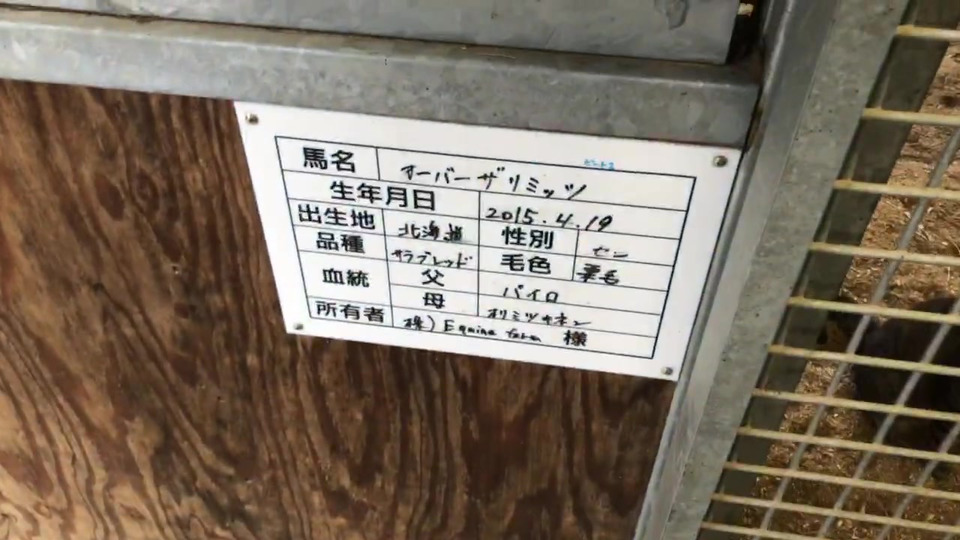 馬名 オーバーザリミッツ
生年月日 2015.4.19
出生地 北海道 性別 セン
品種 サラブレッド 毛色 栗毛
血統 父 パイロ
母 オリミツキネン
所有者 株) Equine farm 様